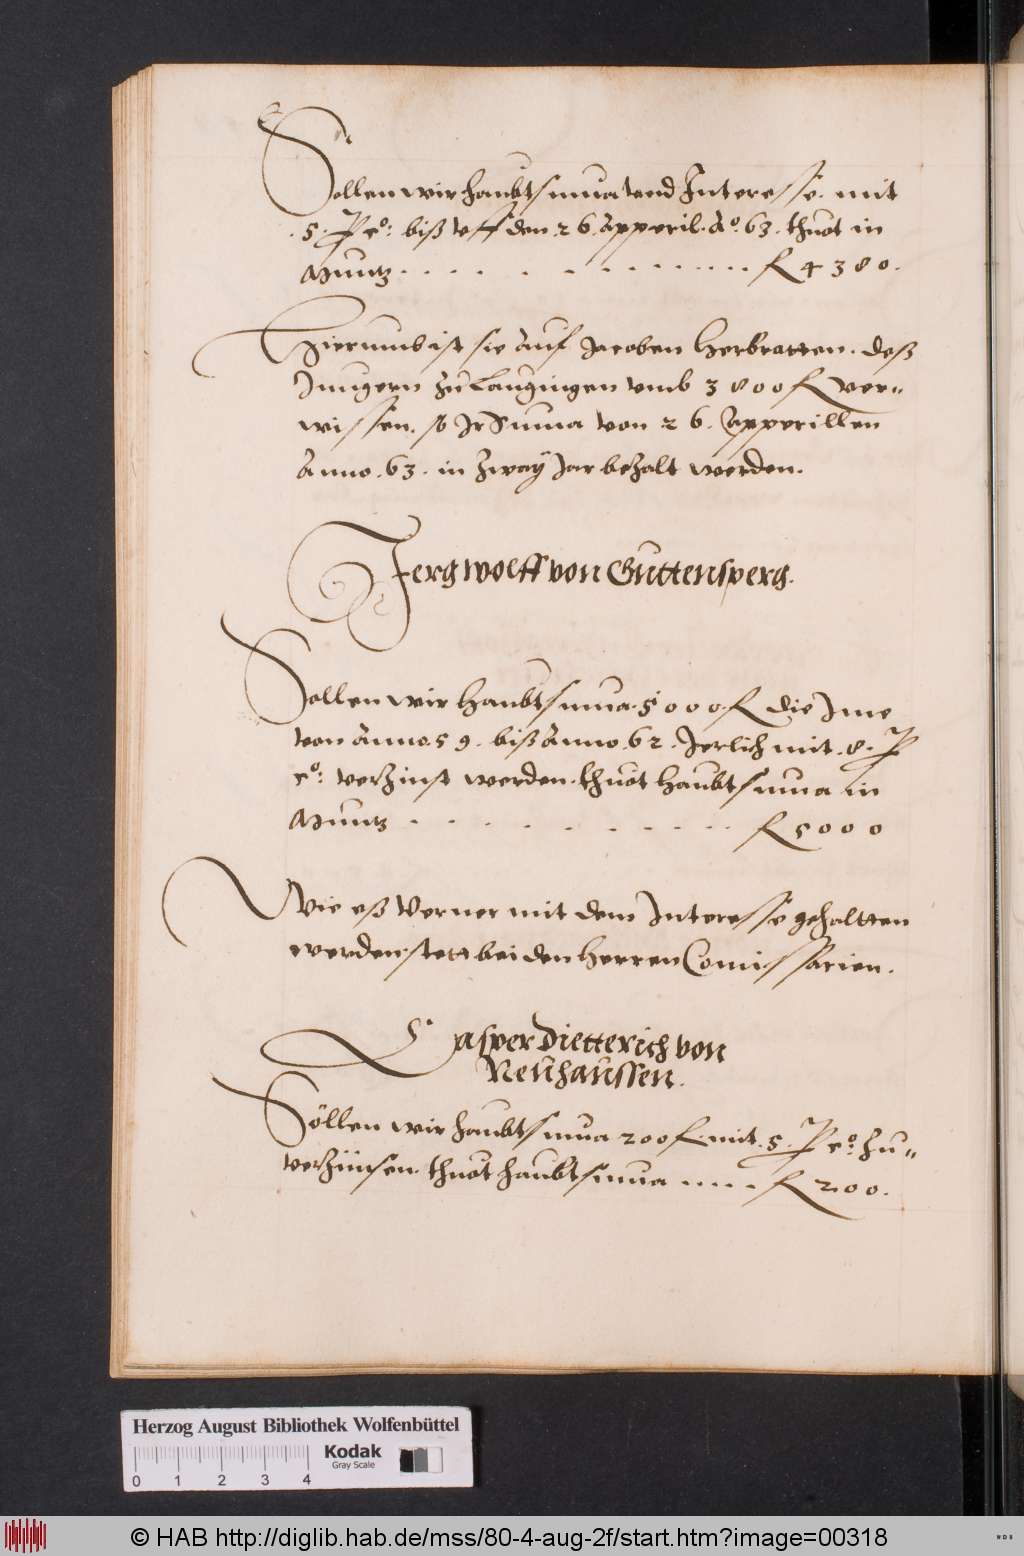 Sollen wir haubtsuma vnd Interesse. mit
.5. P co: biß vff den .26. Apperil. Ao. 63. thuot in
Muntz . . . . . . . . . . . . fl 4380.
Hierumb ist sie auf Jacoben Herbratten. deß
Jungern zu Laugingen vmb 3800 fl ver-
wissen. so Jr Suma von 26. Apperillen
Anno .63. in zway Jar bezalt werden.
Jerg Wolff von Guttensperg.
Sollen wir haubtsuma. 5000. fl die Jme
von Anno. 59. biß Anno .62. Jerlich mit .8. P
co: verzinst werden. thuot haubtsuma in
Muntz . . . . . . . . . . fl 5000
Wie eß Verner mit dem Interesse gehaltten
werden. stett bei den Herren Comissarien.
Casper Dietterich von
Neuhaussen.
Söllen wir haubtsuma 200 fl. mit .5. P co: zu-
verzünsen. thuot haubtsuma ..... fl 200.
Herzog August Bibliothek Wolfenbüttel
Kodak
Gray Scale
0 1 2 3 4
© HAB http://diglib.hab.de/mss/80-4-aug-2f/start.htm?image=00318